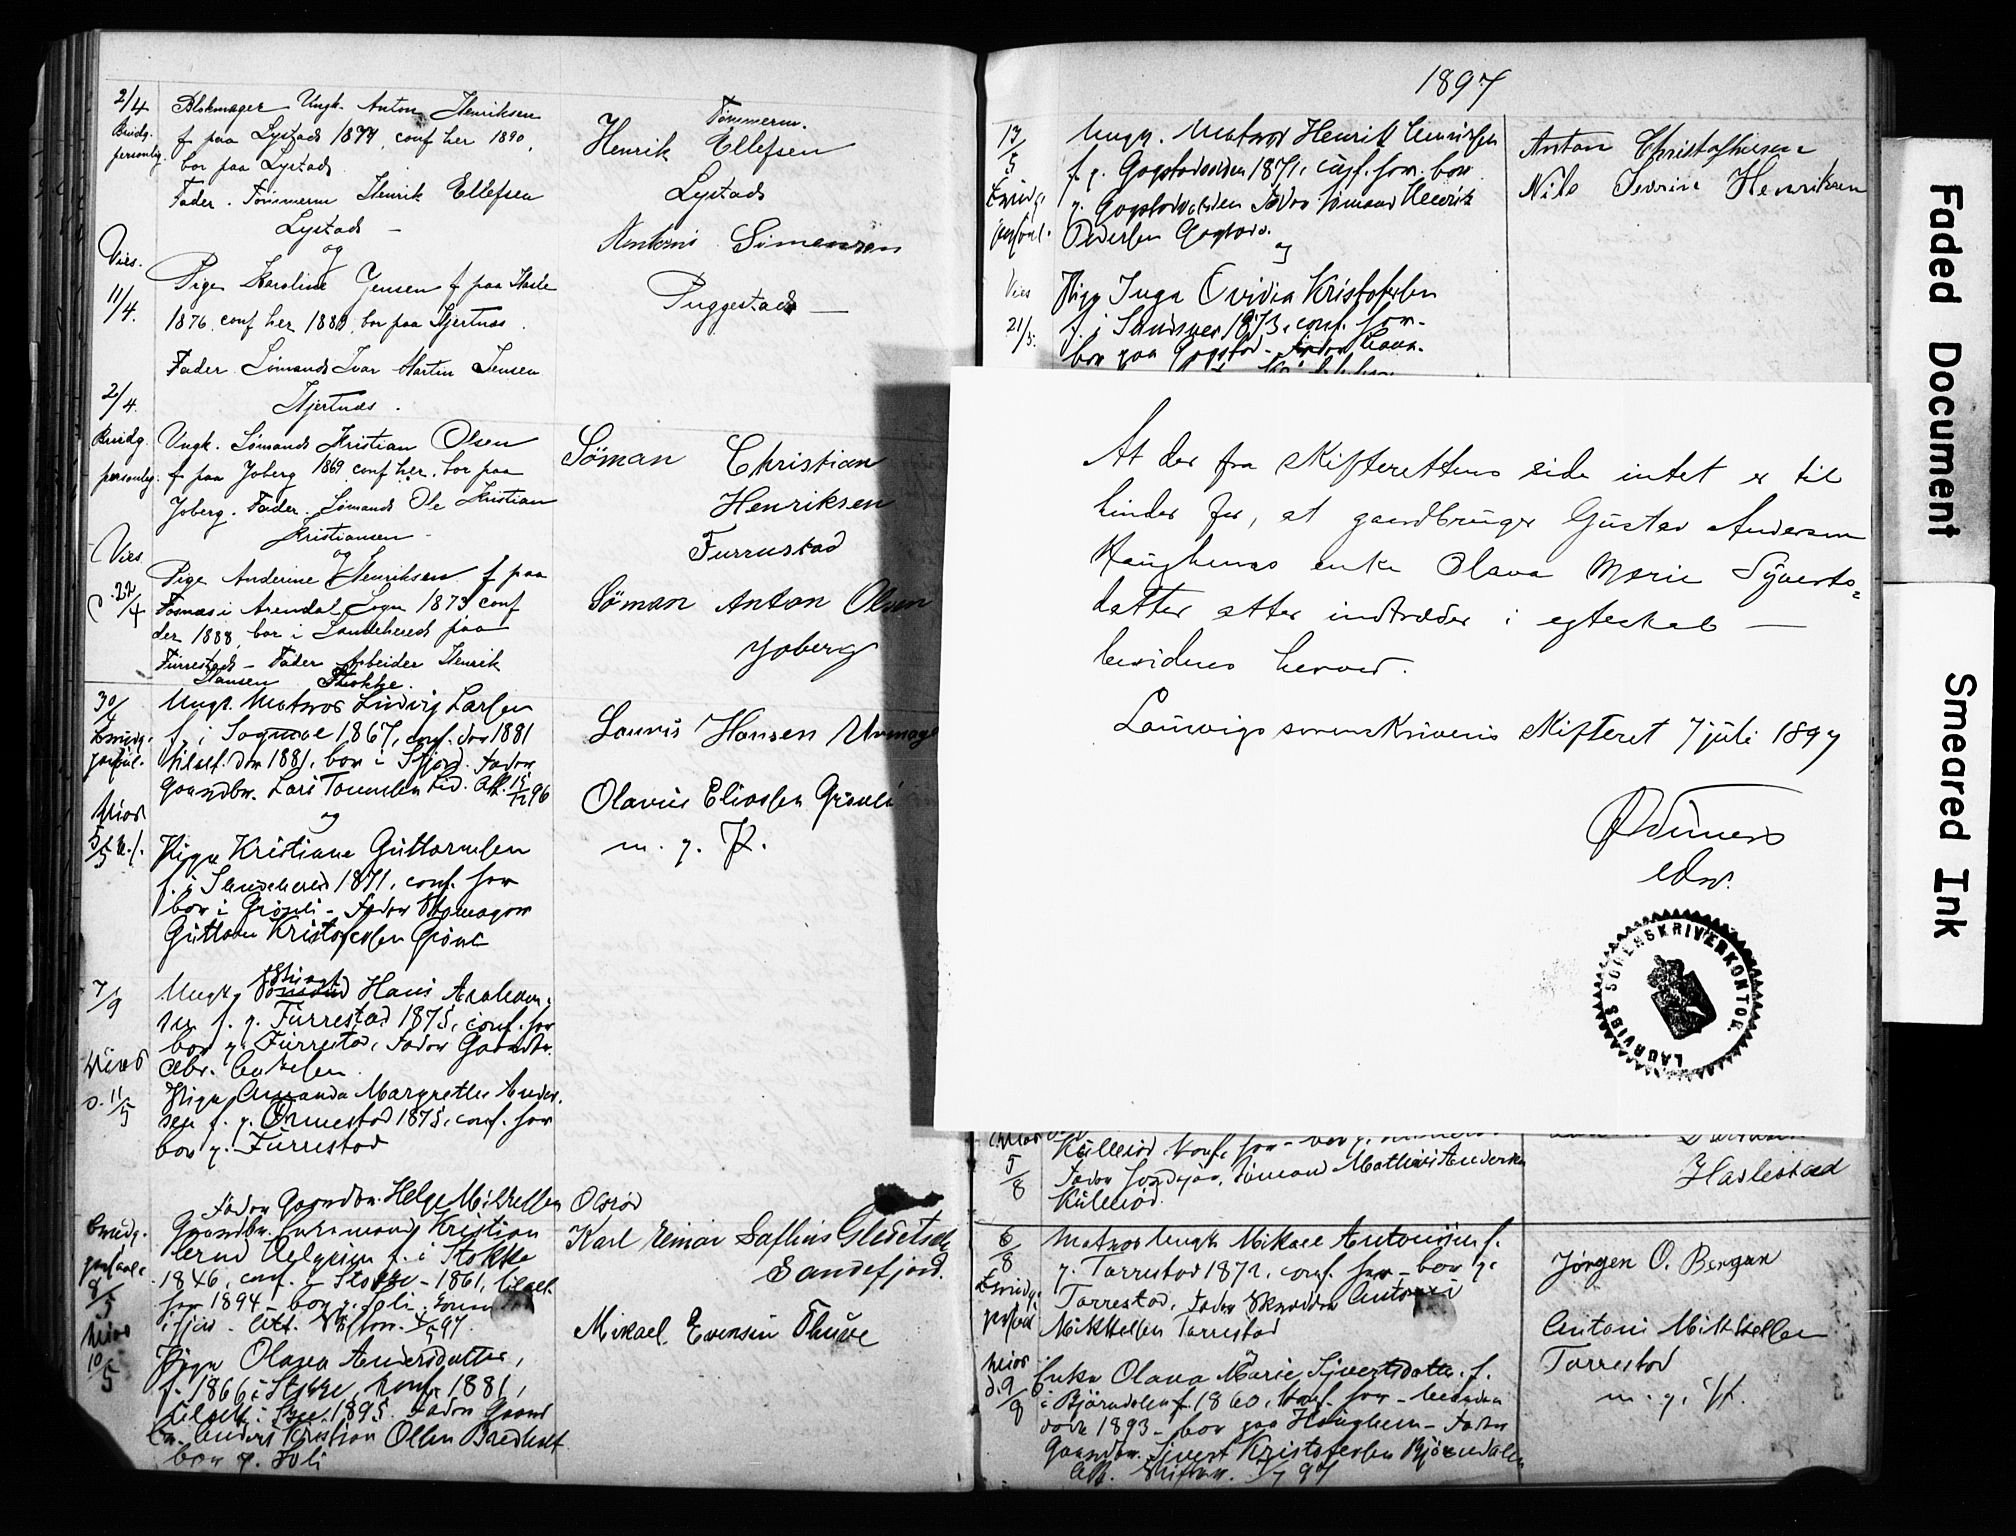 2/4
Brudg.
personlig.
Blokmager Ungk. Anton Henriksen
f paa Lystad 1877, conf her 1890,
bor paa Lystad
Fader. Tømmerm Henrik Ellefsen
Lystad –
og
Vies.
11/4.
Pige Karoline Jensen f paa Hasle
1876. conf her 1880, bor paa Hjertnæs.
Fader Sømand Ivar Martin Jensen
Hjertnæs.
Tømmerm.
Henrik Ellefsen
Lystad
Antoni Simensen
Puggestad –
2/4.
Brudg.
personlig.
Ungk. Sømand Kristian Olsen
f paa Joberg 1869 conf her. bor paa
Joberg. Fader. Sømand Ole Kristian
Kristiansen –
og
Vies
22/4
Pige Anderine Henriksen f paa
Fosnæs i Arendal Sogn 1873 conf
der 1888, bor i Sandehered paa
Furrestad – Fader Arbeider Henrik
Hansen Stokke.
Söman Christian
Henriksen
Furrustad
Söman Anton Olsen
Joberg
30/4
Brudg.
Ungk. Matros Ludvig Larsen
f. i Sogndal 1867, conf. der 1881
tilflt. der 1881, bor i Sfjord. Fader
Gaardbr. Lars Tommesen Lid. Att. 15/12 96
og
Vies
5/5
Pige Kristiane Guttormsen
f. i Sandehered 1871, conf. her
bor i Grönli – Fader Skomager
Guttorm Kristofersen Grönli
Lauris Hansen Urmag
Olavus Eliassen Grönli
m. p. P.
7/9
Ungk. Styrmd Hans Abraham-
sen f. p. Furrestad 1875, conf. her
bor p. Furrestad, Fader Gaardbr.
Vies
11/5
Pige Amanda Margrethe Ander-
sen f. p. Ormestad 1875, conf. her
bor p. Furrestad
Fader Gaardbr. Helge Mikkelsen Olsröd
Brudg.
8/5
Gaardbr. Enkemand Kristian
f. i Stokke
1846, conf. i Stokke – 1861, tilflt.
her 1894 – bor p. Joli
i fjord. Att. Skifter. 7/5 97.
Vies
10/5
Pige Olava Andersdatter,
f. 1866 i Stokke, konf. 1881,
tilflt. i 1895. Fader Gaard
br. Anders Kristian Olsen Bredholt
bor p. Joli
Karl Einar Saflius Gleditsch
Sandefjord.
Mikael Evensen Thuve
1897
17/5
Brudg.
Ungk. Matros Henrik Henriksen
f. p. Gogstadveiden 1871, conf. her. bor
p. Gogstadveiden Fader Sömand Henrik
Pedersen Gogstad.
og
Vies
21/5.
Pige Inga Ovidia Kristofersen
f. i Sandsver 1873, conf. her –
bor paa Gogstad –
Anton Christofhersen
Nils Severin Henriksen
At der fra Skifterettens side intet er til
hinder for, at gaardbruger Gustav Andersen
Haughems enke Olava Marie Syverts-
datter atter indtræder i egteskab –
bevidnes herved.
Laurvigs sorenskriveris Skifteret 7 juli 1897
LAURVIGS SORENSKRIVERKONTOR
Faded Document
Smeared Ink
5/8
Külleröd. konf. her –
Fader Gaardejer, Sömand Mathias Andersen
Külleröd.
Haslestad
6/8
Brudg.
Matros Ungk. Mikael Antonisen f.
p. Torrestad 1872. conf. her – bor p.
Torrestad, Fader Skrædder Antoni
Mikkelsen Torrestad
Vies
9/8
Enke Olava Marie Sjvertsdatter f.
i Björndalen 1860, konf. her –
döde 1893 – bor paa Haughem – Fader
Gaardbr. Sjvert Kristofersen Björndalen
Att. Skifter. 7/7 97
Jörgen O. Bergan
Antoni Mikkelsen
Torrestad
m. p. P.